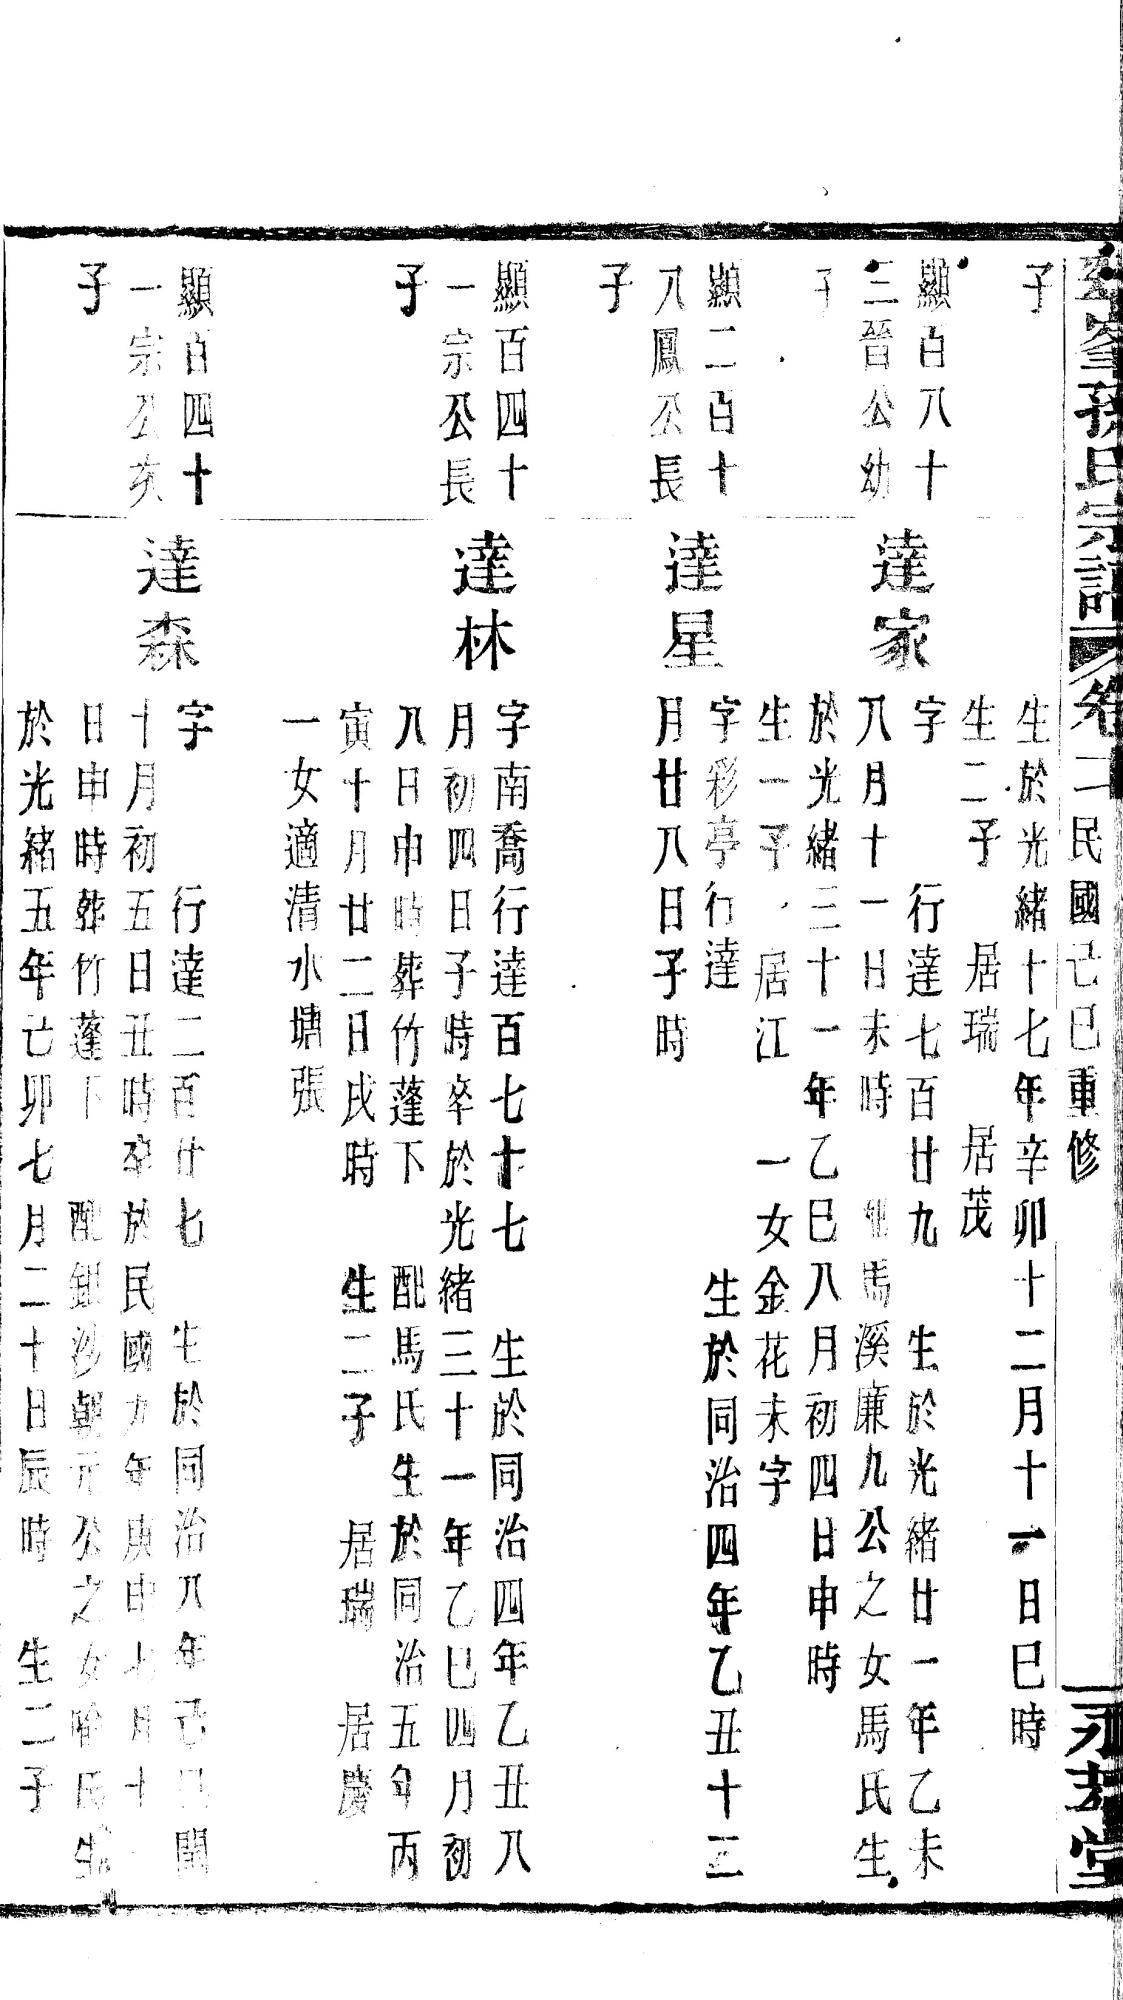 峯孫氏宗譜 卷二 民國己巳重修 堂
子
生於光緒十七年辛卯十二月十一日巳時
生二子 居瑞 居茂
顯百八十
三晉公幼
子
達家
字 行達七百廿九 生於光緒廿一年乙未
八月十一日未時 配馬溪廉九公之女馬氏生
於光緒三十一年乙巳八月初四日申時
生一子 居江 一女金花未字
顯二百十
八鳳公長
子
達星
字彩亭行達 生於同治四年乙丑十二
月廿八日子時
顯百四十
一宗公長
子
達林
字南喬行達百七十七 生於同治四年乙丑八
月初四日子時卒於光緒三十一年乙巳四月初
八日申時葬竹蓬下 配馬氏生於同治五年丙
寅十月廿二日戌時 生二子 居瑞 居慶
一女適清水塘張
顯百四十
一宗公次
子
達森
字 行達二百廿七 生於同治八年己巳閏
十月初五日丑時卒於民國九年庚申七月十
日申時葬竹蓬下 配銀沙朝元公之女喻氏生
於光緒五年己卯七月二十日辰時 生二子